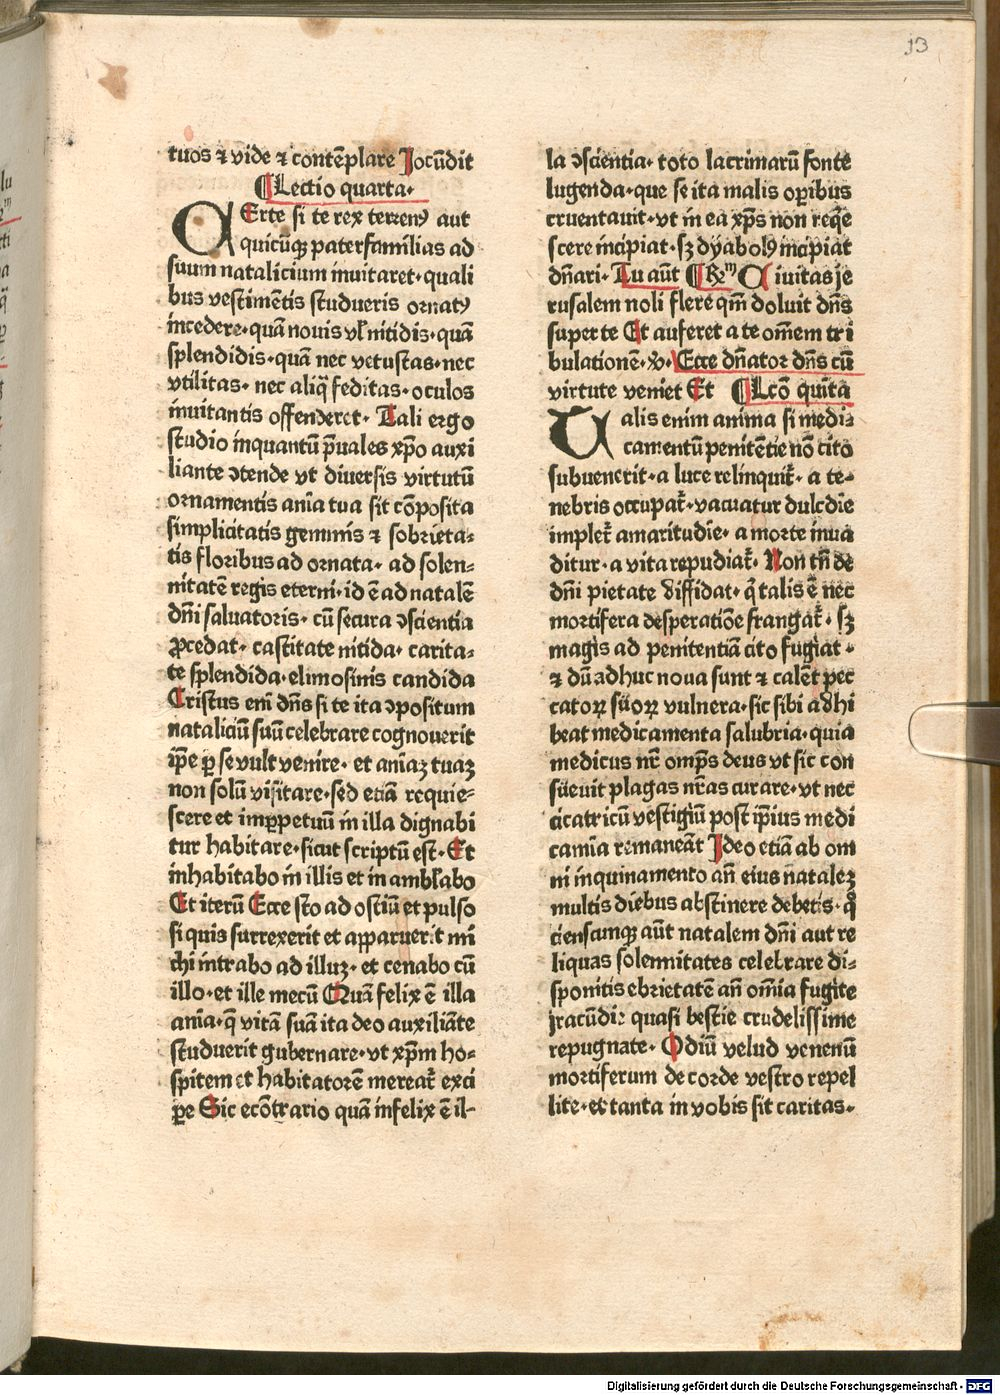 13
tuos ⁊ vide ⁊ contēplare Jocūdit
¶Lectio quarta.
CErte si te rex terrenꝰ aut
quicūqꝫ paterfamilias ad
suum natalicium inuitaret· quali
bus vestimētis studueris ornatꝰ
incedere· quā nouis vl̄ nitidis· quā
splendidis· quā nec vetustas· nec
vtilitas· nec aliq̄ feditas· oculos
inuitantis offenderet· Tali ergo
studio inquantū p̄uales xp̄o auxi
liante ↄtende vt diuersis virtutū
ornamentis aīa tua sit cōposita
simplicitatis gemmis ⁊ sobrieta⸗
tis floribus ad ornata· ad solen⸗
nitatē regis eterni· id ē ad natalē
dn̄i saluatoris· cū secura ↄscientia
ꝓcedat· castitate nitida· carita⸗
te splendida· elimosinis candida
Cristus eni dn̄s si te ita ↄpositum
nataliciū suū celebrare cognouerit
ip̄e ꝑ se vult venire· et aīaꝫ tuaꝫ
non solū visitare· sed etiā requie⸗
scere et imꝑpetuū in illa dignabi
tur habitare· sicut scriptū est· Et
inhabitabo in illis et in amb̄labo
Et iterū Ecce sto ad ostiū et pulso
si quis surrexerit et apparuerit mi
chi intrabo ad illuꝫ· et cenabo cū
illo· et ille mecū Quā felix ē illa
aīa· q̄ vitā suā ita deo auxiliāte
studuerit gubernare· vt xp̄m ho⸗
spitem et habitatorē mereat̄ exci
ꝑe Sic ecōtrario quā infelix ē il⸗
la ↄscientia· toto lacrimarū fonte
lugenda· que se ita malis oꝑibus
cruentauit· vt in ea xp̄s non reqͥe
scere incipiat· sꝫ dyabolꝰ incipiat
dn̄ari· Tu aūt ¶Rm̄ Ciuitas je
rusalem noli flere qm̄ doluit dn̄s
super te Et auferet a te omēm tri
bulationē· v̄· Ecce dn̄ator dn̄s cū
virtute veniet Et ¶Lcō quīta
Talis enim anima si medi⸗
camentū penitētie nō cito
subuenerit· a luce relinquit̄· a te⸗
nebris occupat̄· vacuatur dulcdīe
implet̄ amaritudīe· a morte inua
ditur· a vita repudiat̄· Non tn̄ de
dn̄i pietate diffidat· q̄ talis ē nec
mortifera desperatiōe frangat̄· sꝫ
magis ad penitentiā cito fugiat·
⁊ dū adhuc noua sunt ⁊ calēt pec
catoꝝ suoꝝ vulnera· sic sibi adhi
beat medicamenta salubria· quia
medicus nr̄ omp̄s deus vt sic con
sueuit plagas nr̄as curare· vt nec
cicatricū vestigiū post ip̄ius medi
camīa remaneāt Ideo etiā ab om
ni inquinamento an̄ eius nataleꝫ
multis diebus abstinere debetis· q̄
ciensamqꝫ aūt natalem dn̄i aut re
liquas solemnitates celebrare di⸗
sponitis ebrietatē an̄ omīa fugite
jracūdie quasi bestie crudelissime
repugnate· Odiū velud venenū
mortiferum de corde vestro repel
lite· et tanta in vobis sit caritas·
Digitalisierung gefördert durch die Deutsche Forschungsgemeinschaft - DFG